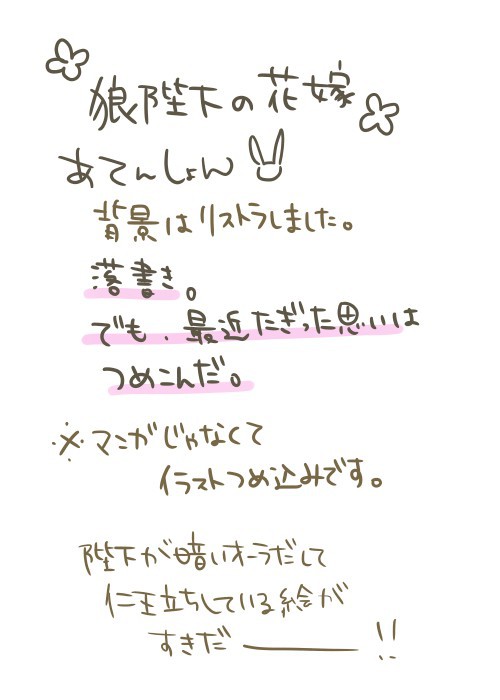 狼陛下の花嫁
あてんしょん
背景はリストラしました。
落書き。
でも、最近たぎった思いは
つめこんだ。
※マンガじゃなくて
イラストつめ込みです。
陛下が暗いオーラだして
仁王立ちしている絵が
すきだ――!!